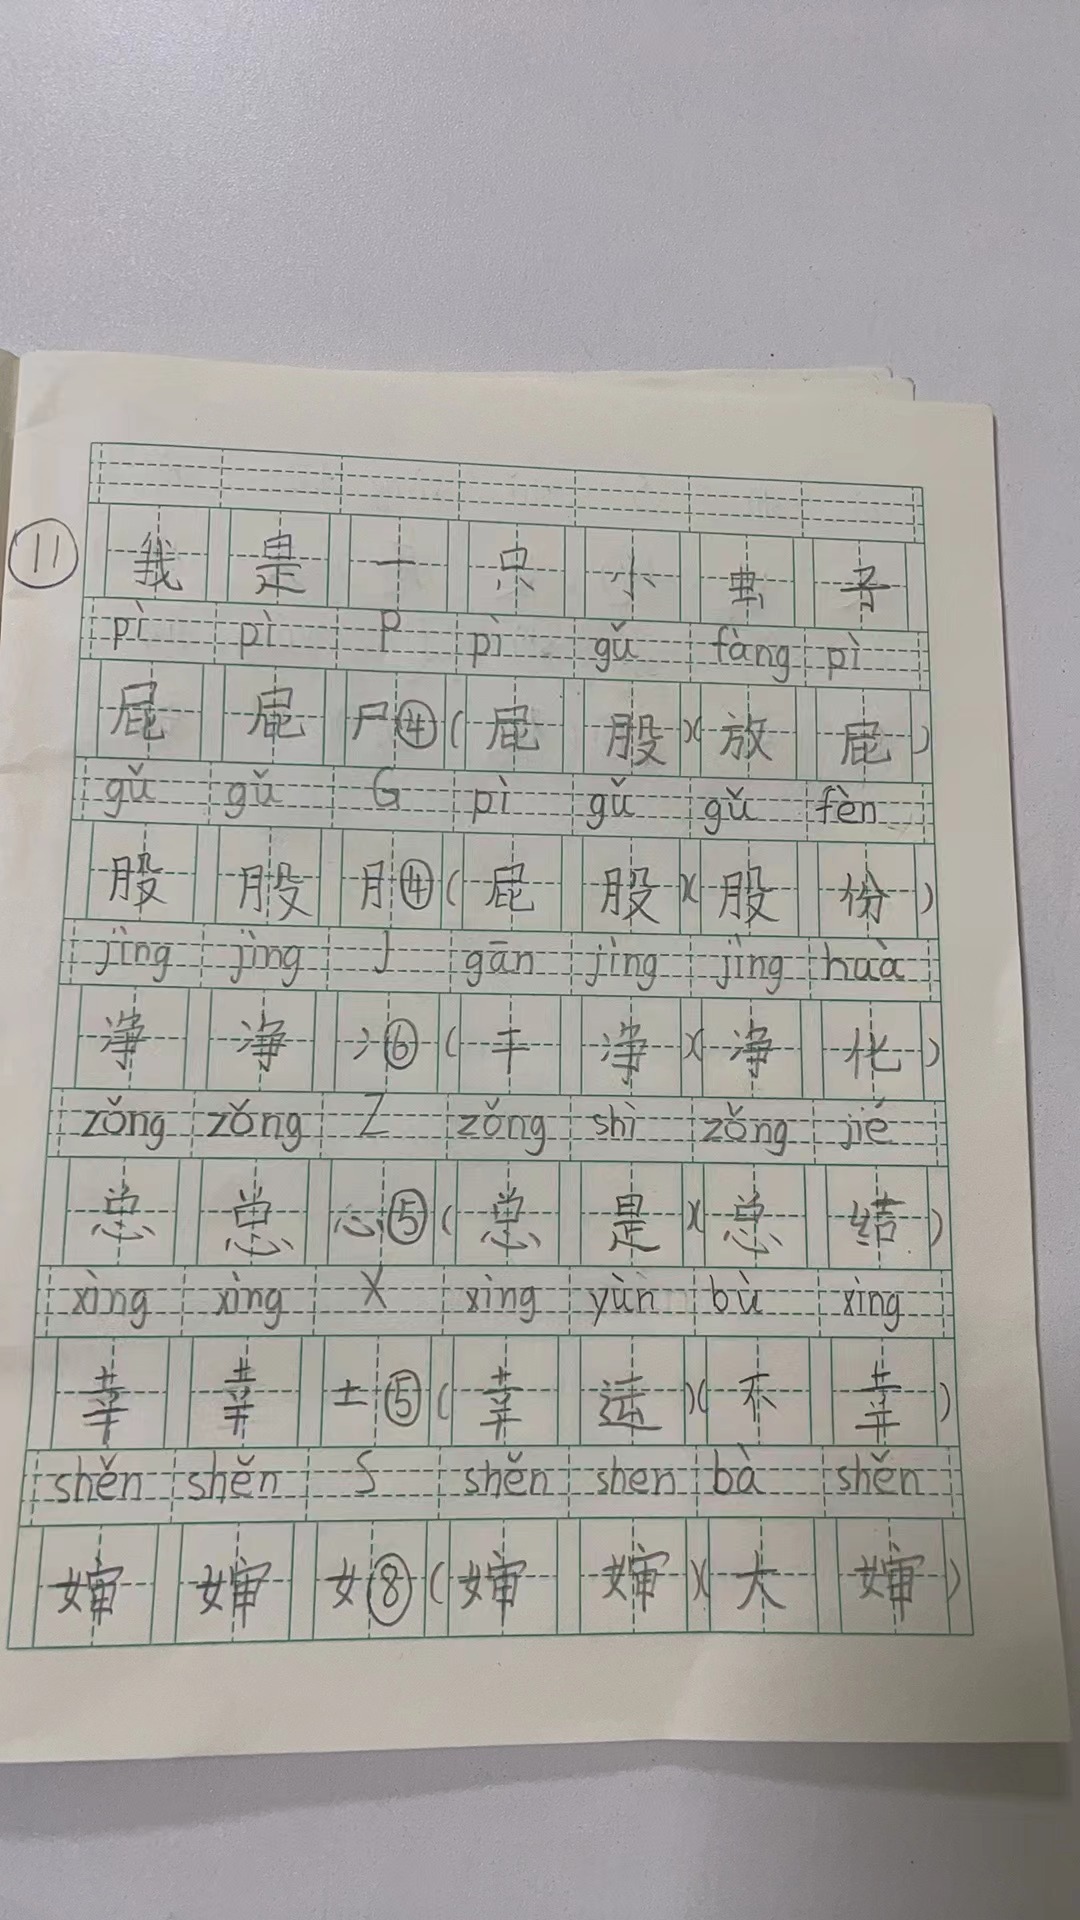 11 我是一只小虫子
pì pì P pì gǔ fàng pì
屁 屁 尸④(屁股)(放屁)
gǔ gǔ G pì gǔ gǔ fèn
股 股 月④(屁股)(股份)
jìng jìng J gān jìng jìng huà
净 净 冫⑥(干净)(净化)
zǒng zǒng Z zǒng shì zǒng jié
总 总 心⑤(总是)(总结)
xìng xìng X xìng yùn bù xìng
幸 幸 土⑤(幸运)(不幸)
shěn shěn S shěn shen bà shěn
婶 婶 女⑧(婶婶)(大婶)